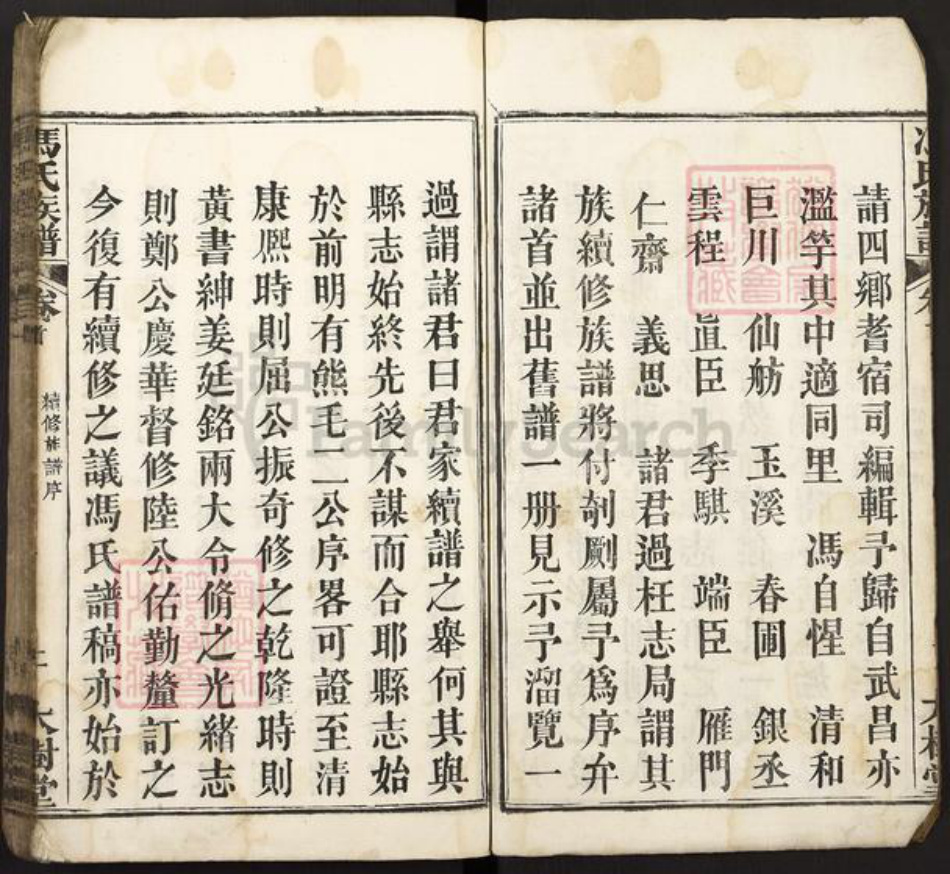 請四鄉耆宿司編輯予歸自武昌亦
濫竽其中適同里 馮自惺 清和
巨川 仙舫 玉溪 春圃 銀丞
雲程 直臣 季騏 端臣 雁門
仁齋 義思 諸君過枉志局謂其
族續修族譜將付剞劂屬予爲序弁
諸首並出舊譜一册見示予溜覽一
過謂諸君曰君家續譜之舉何其與
縣志始終先後不謀而合耶縣志始
於前明有熊毛二公序畧可證至清
康熙時則屈公振奇修之乾隆時則
黃書紳姜廷銘兩大令脩之光緒志
則鄭公慶華督修陸公佑勤釐訂之
今復有續修之議馮氏譜稿亦始於
馮氏族譜 卷首 續修族譜序 大樹堂
FamilySearch